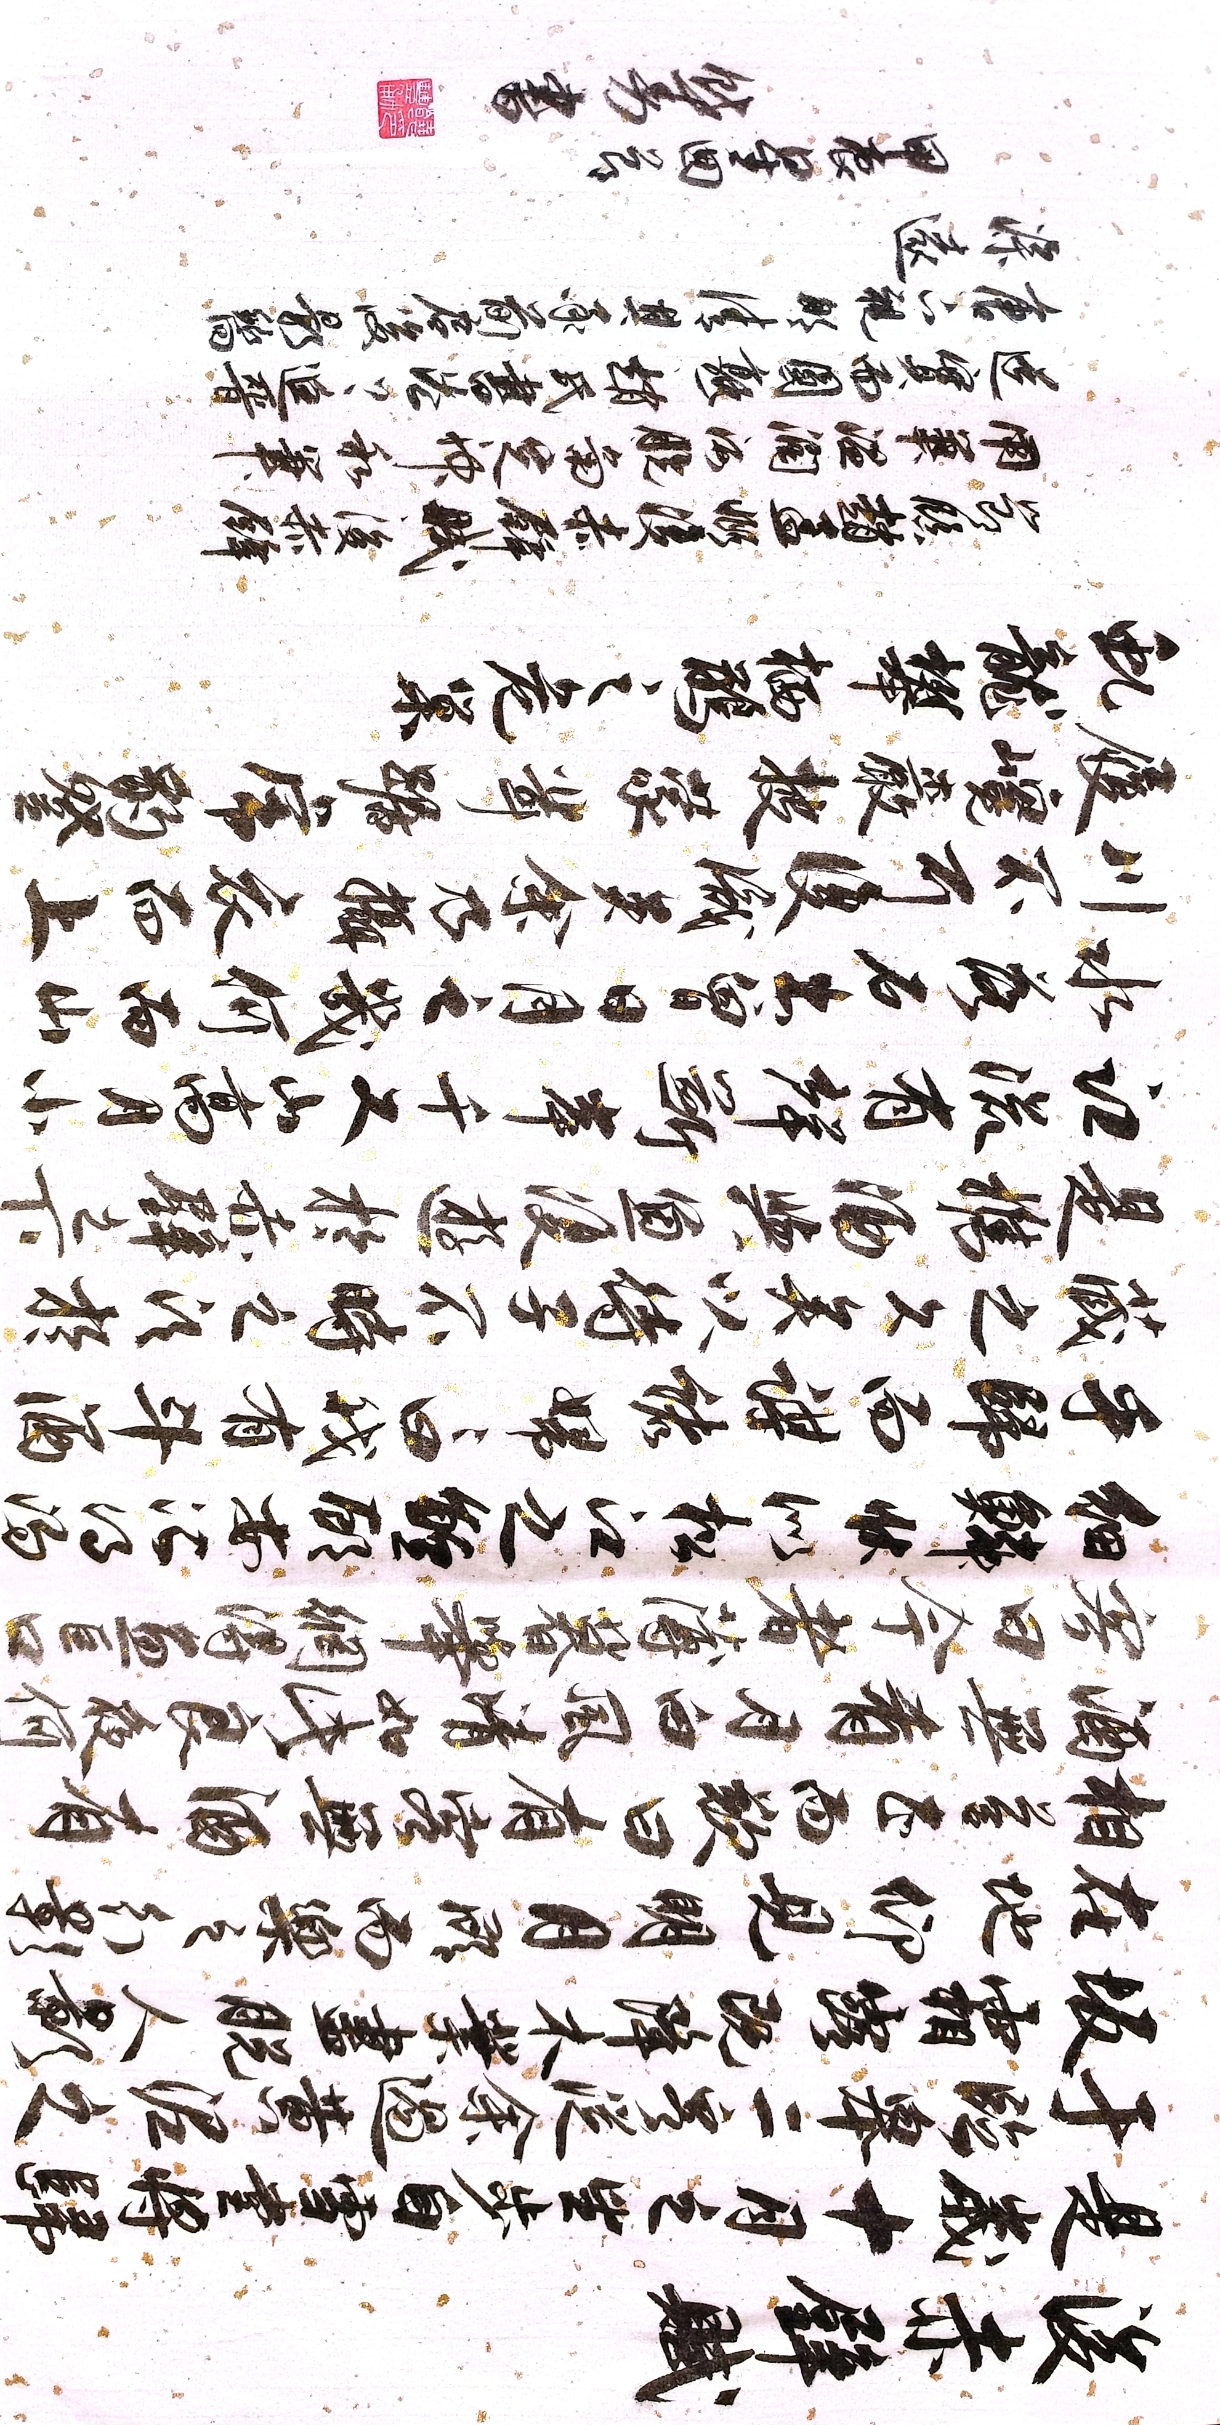 後赤壁賦
是歲十月之望步自雪堂將歸
于臨皋二客從余過黃泥之
坂霜露既降木葉盡脫人影
在地仰見明月顧而樂之行
相答已而歎曰有客無酒有
酒無肴月白風清如此良夜何
客曰今者薄暮舉網得魚巨口
細鱗狀似松江之鱸顧安所得酒
乎歸而謀諸婦婦曰我有斗酒
藏之久矣以待子不時之須於
是攜酒與魚復遊於赤壁之下
江流有聲斷岸千尺山高月小
水落石出曾日月之幾何而山
川不可復識矣余乃攝衣而上
履巉巖披蒙茸踞虎豹登
虬龍攀栖鶻之危巢
臨趙孟頫後赤壁賦後赤壁
用筆溫潤流
而圓趙氏書法追晉
唐
甲辰
書